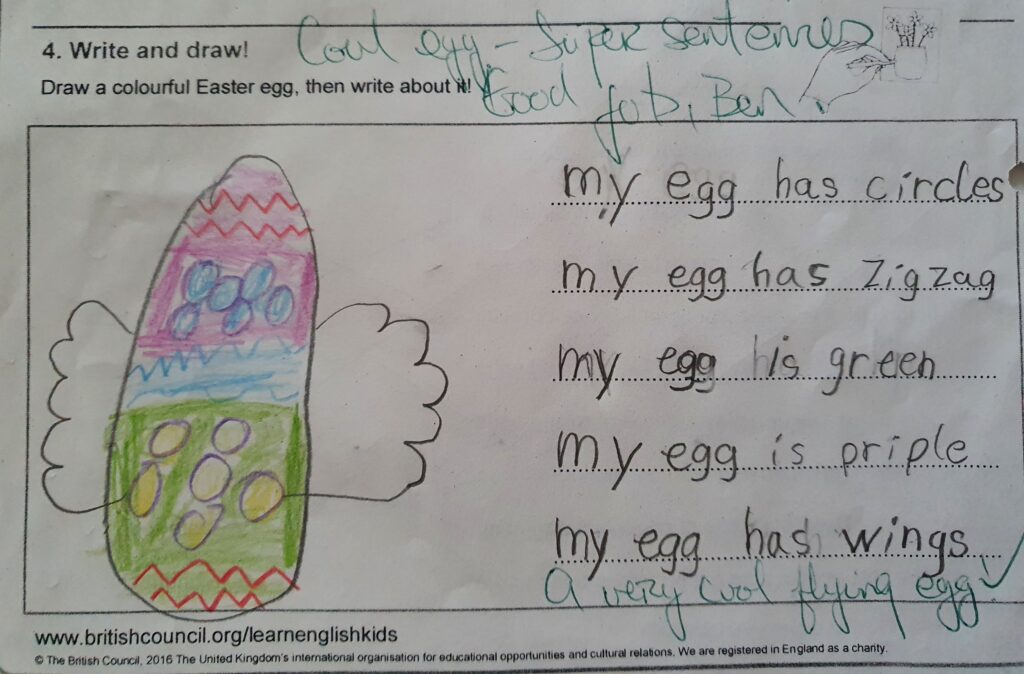 Cool egg - Super sentences
4. Write and draw!
Draw a colourful Easter egg, then write about it!
Good job, Ben
my egg has circles
my egg has zigzag
my egg is green
my egg is priple
my egg has wings
A very cool flying egg
www.britishcouncil.org/learnenglishkids
© The British Council, 2016 The United Kingdom's international organisation for educational opportunities and cultural relations. We are registered in England as a charity.